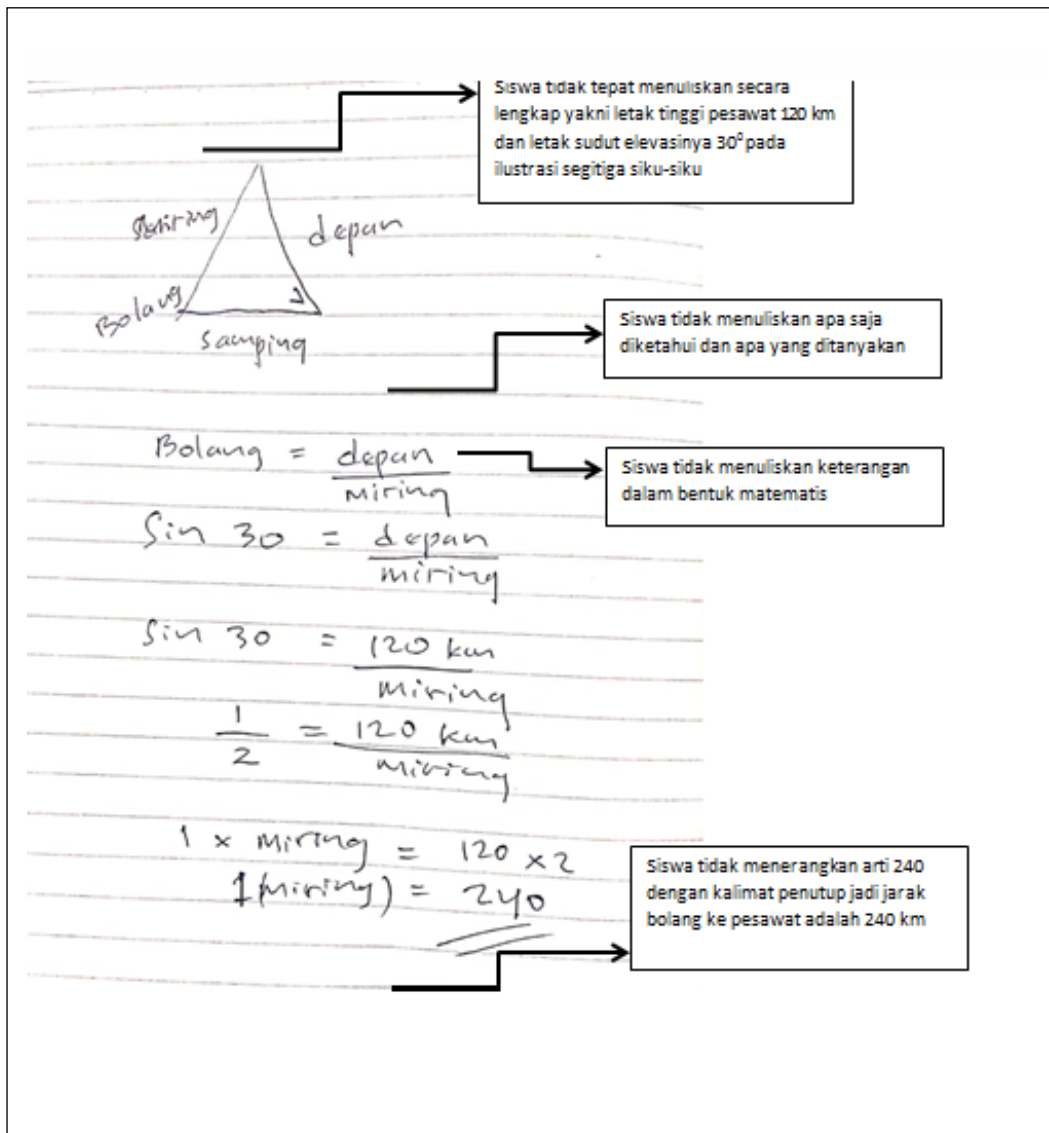 Siswa tidak tepat menuliskan secara
lengkap yakni letak tinggi pesawat 120 km
dan letak sudut elevasinya 30⁰ pada
ilustrasi segitiga siku-siku
depan
Bolang
samping
Siswa tidak menuliskan apa saja
diketahui dan apa yang ditanyakan
Bolang = depan
miring
Siswa tidak menuliskan keterangan
dalam bentuk matematis
Sin 30 = depan
miring
Sin 30 = 120 km
miring
1 = 120 km
2 miring
1 x miring = 120 x 2
1 (miring) = 240
Siswa tidak menerangkan arti 240
dengan kalimat penutup jadi jarak
bolang ke pesawat adalah 240 km